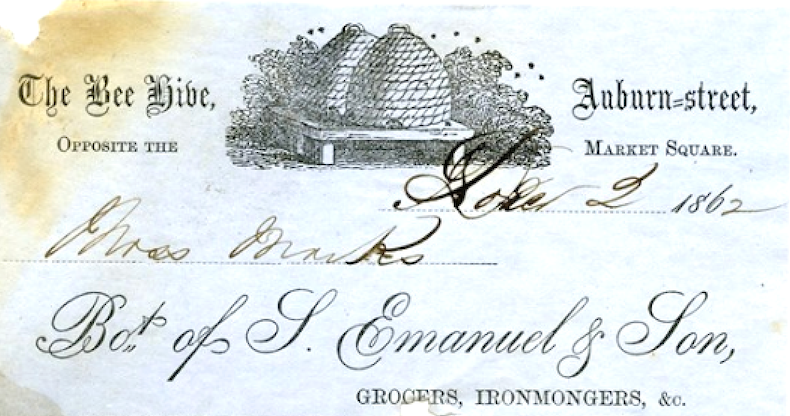 The Bee Hive, Auburn=street,
OPPOSITE THE MARKET SQUARE.
2 1862
Moss Marks
Bot. of S. Emanuel & Son,
GROCERS, IRONMONGERS, &c.